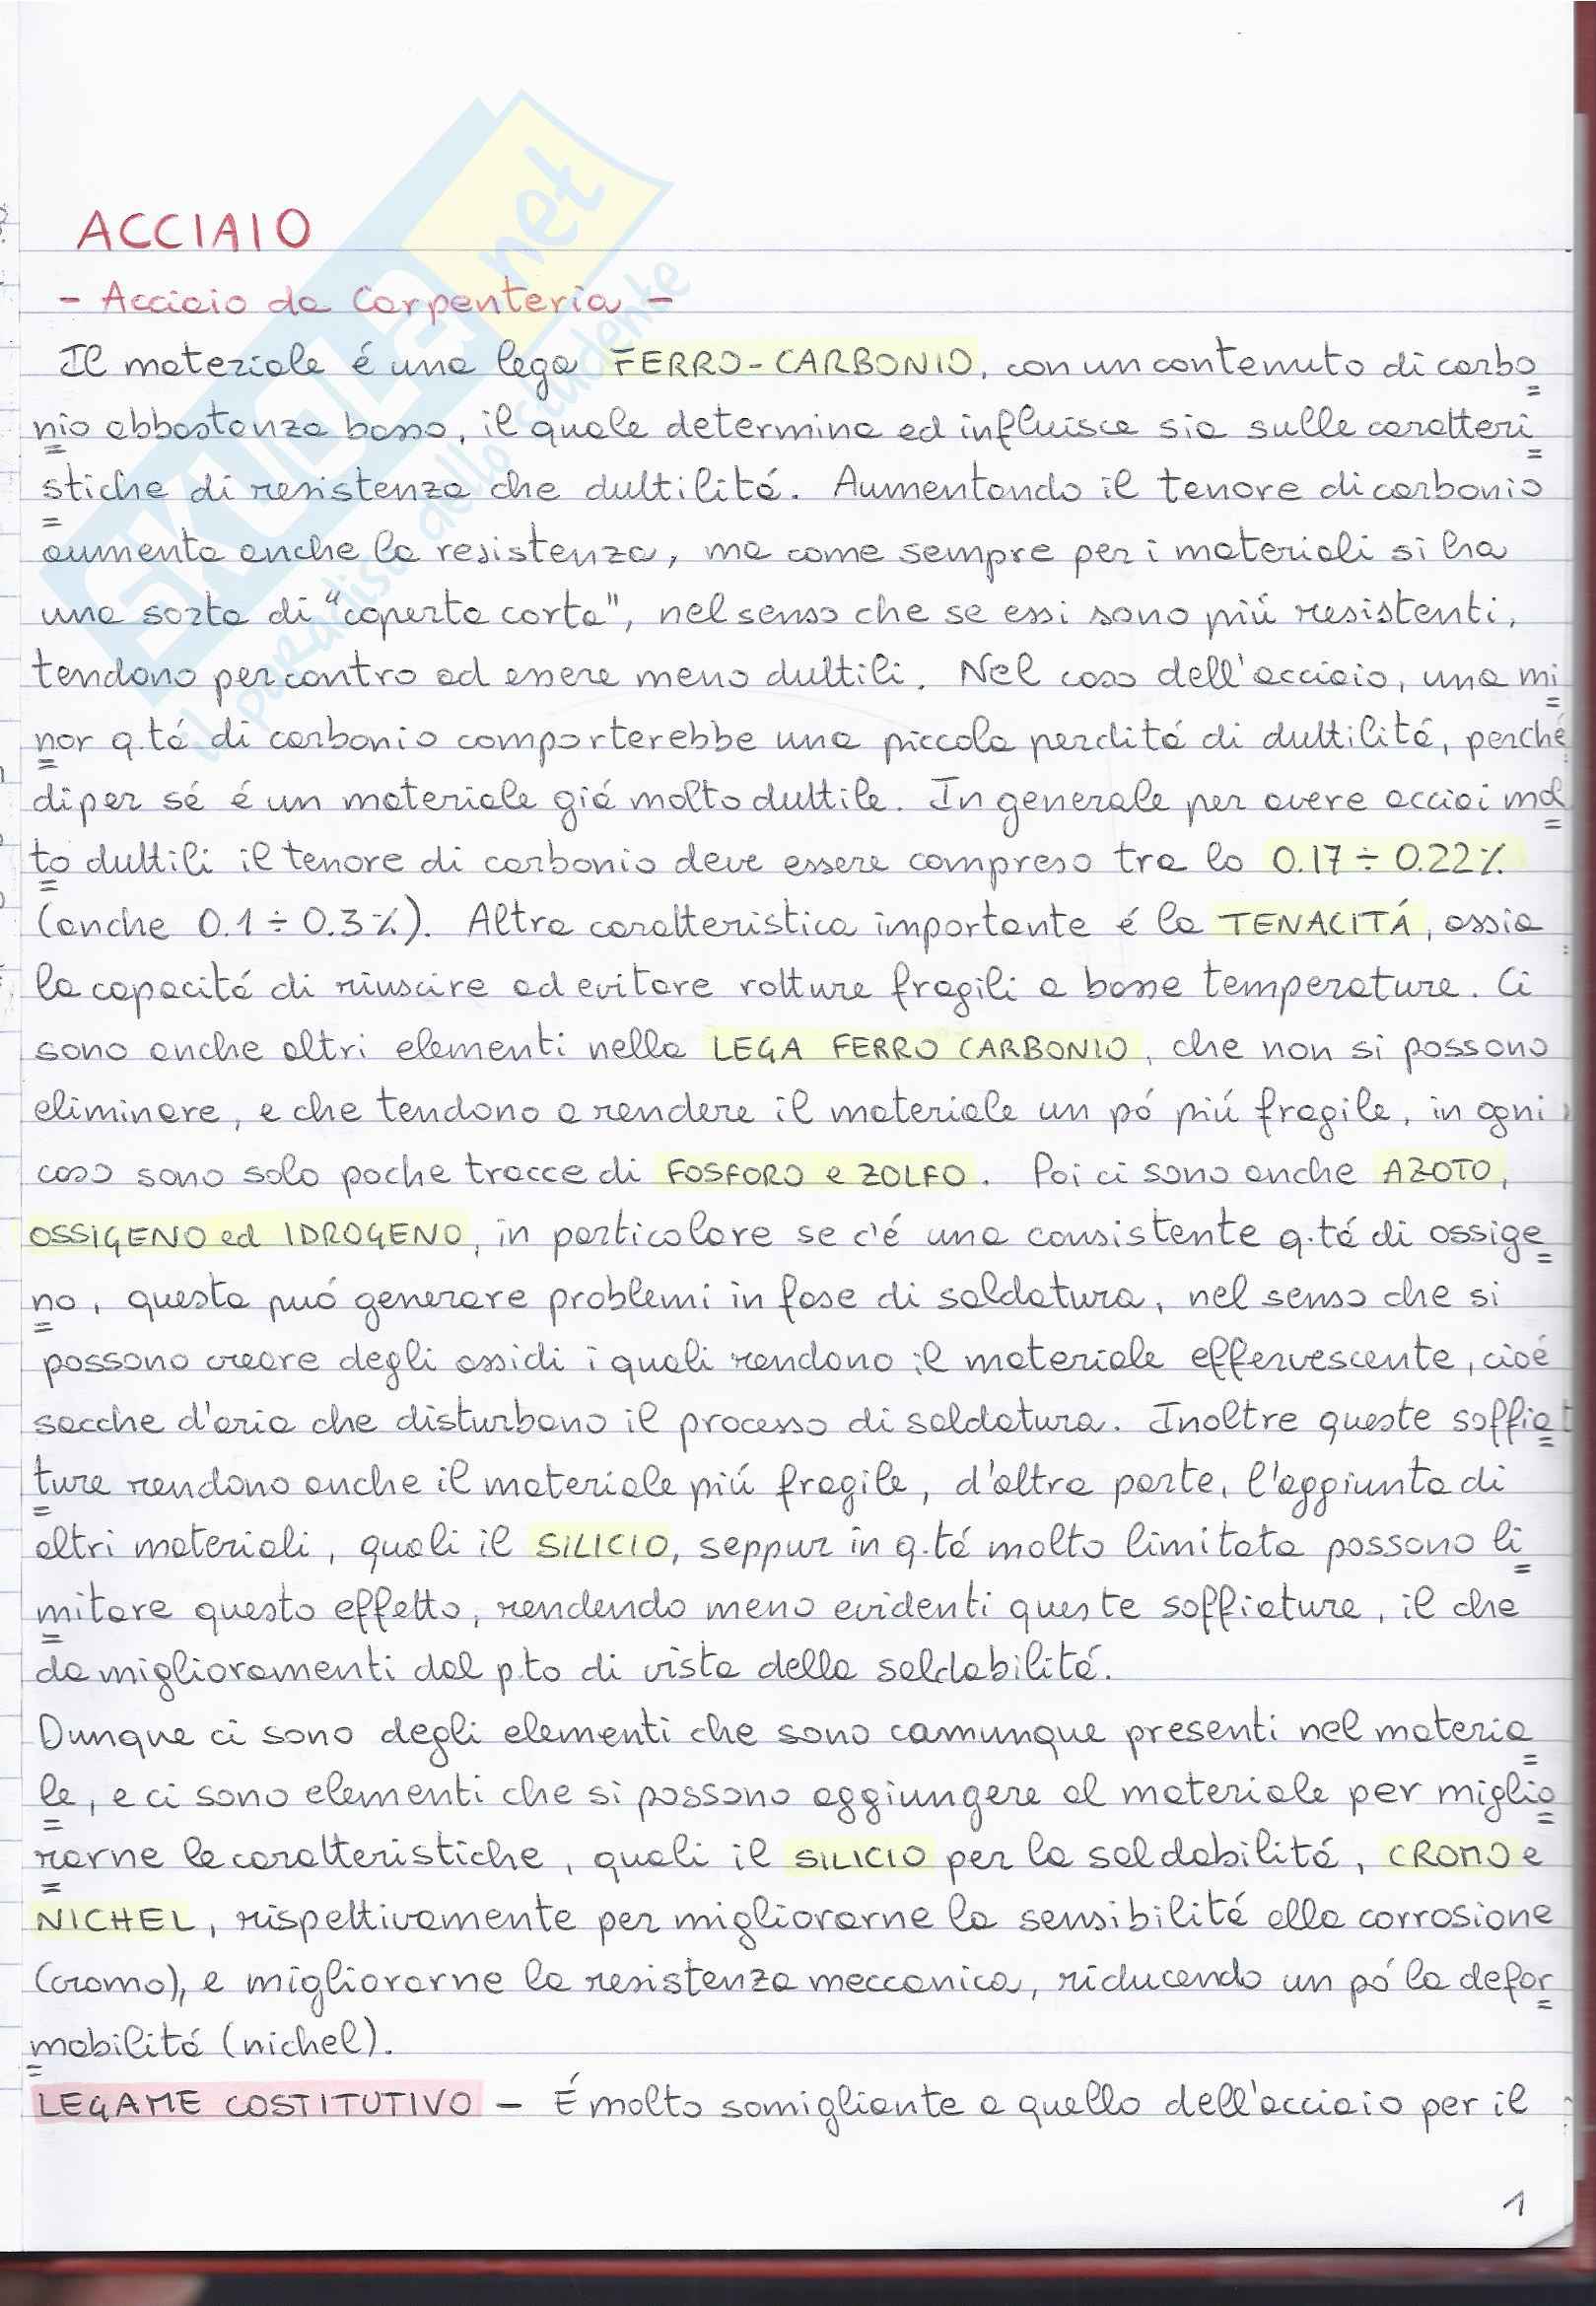 ACCIAIO
- Acciaio da Carpenteria -
Il materiale é una lega FERRO-CARBONIO, con un contenuto di carbo
nio abbastanza basso, il quale determina ed influisce sia sulle caratteri
stiche di resistenza che duttilitá. Aumentando il tenore di carbonio
aumenta anche la resistenza, ma come sempre per i materiali si ha
una sorta di "coperta corta", nel senso che se essi sono piú resistenti,
tendono per contro ad essere meno duttili. Nel caso dell'acciaio, una mi
nor q.tá di carbonio comporterebbe una piccola perdita di duttilitá, perché
di per sé é un materiale giá molto duttile. In generale per avere acciai mol
to duttili il tenore di carbonio deve essere compreso tra lo 0.17 ÷ 0.22%
(anche 0.1 ÷ 0.3%). Altra caratteristica importante é la TENACITÁ, ossia
la capacitá di riuscire ad evitare rotture fragili a basse temperature. Ci
sono anche altri elementi nella LEGA FERRO CARBONIO, che non si possono
eliminare, e che tendono a rendere il materiale un pó piú fragile, in ogni
caso sono solo poche tracce di FOSFORO e ZOLFO. Poi ci sono anche AZOTO,
OSSIGENO ed IDROGENO, in particolare se c'é una consistente q.tá di ossige
no, questa puó generare problemi in fase di saldatura, nel senso che si
possono creare degli ossidi i quali rendono il materiale effervescente, cioé
sacche d'aria che disturbano il processo di saldatura. Inoltre queste soffia
ture rendono anche il materiale piú fragile, d'altra parte, l'aggiunta di
altri materiali, quali il SILICIO, seppur in q.tá molto limitata possono li
mitare questo effetto, rendendo meno evidenti queste soffiature, il che
da miglioramenti dal p.to di vista della saldabilitá.
Dunque ci sono degli elementi che sono comunque presenti nel materia
le, e ci sono elementi che si possono aggiungere al materiale per miglio
rarne le caratteristiche, quali il SILICIO per la saldabilitá, CROMO e
NICHEL, rispettivamente per migliorarne la sensibilitá alla corrosione
(cromo), e migliorarne la resistenza meccanica, riducendo un pó la defor
mabilitá (nichel).
LEGAME COSTITUTIVO - É molto somigliante a quello dell'acciaio per il
1
SKUOLA.net
il paradiso dello studente